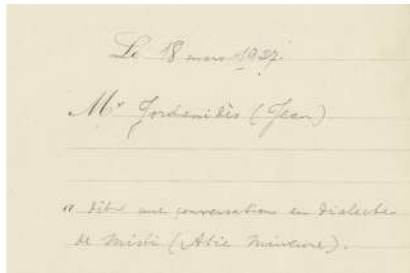 Le 18 mars 1927.
Mr Jordanidès (Jean)
a dit une conversation en dialecte
de Misti (Asie Mineure).